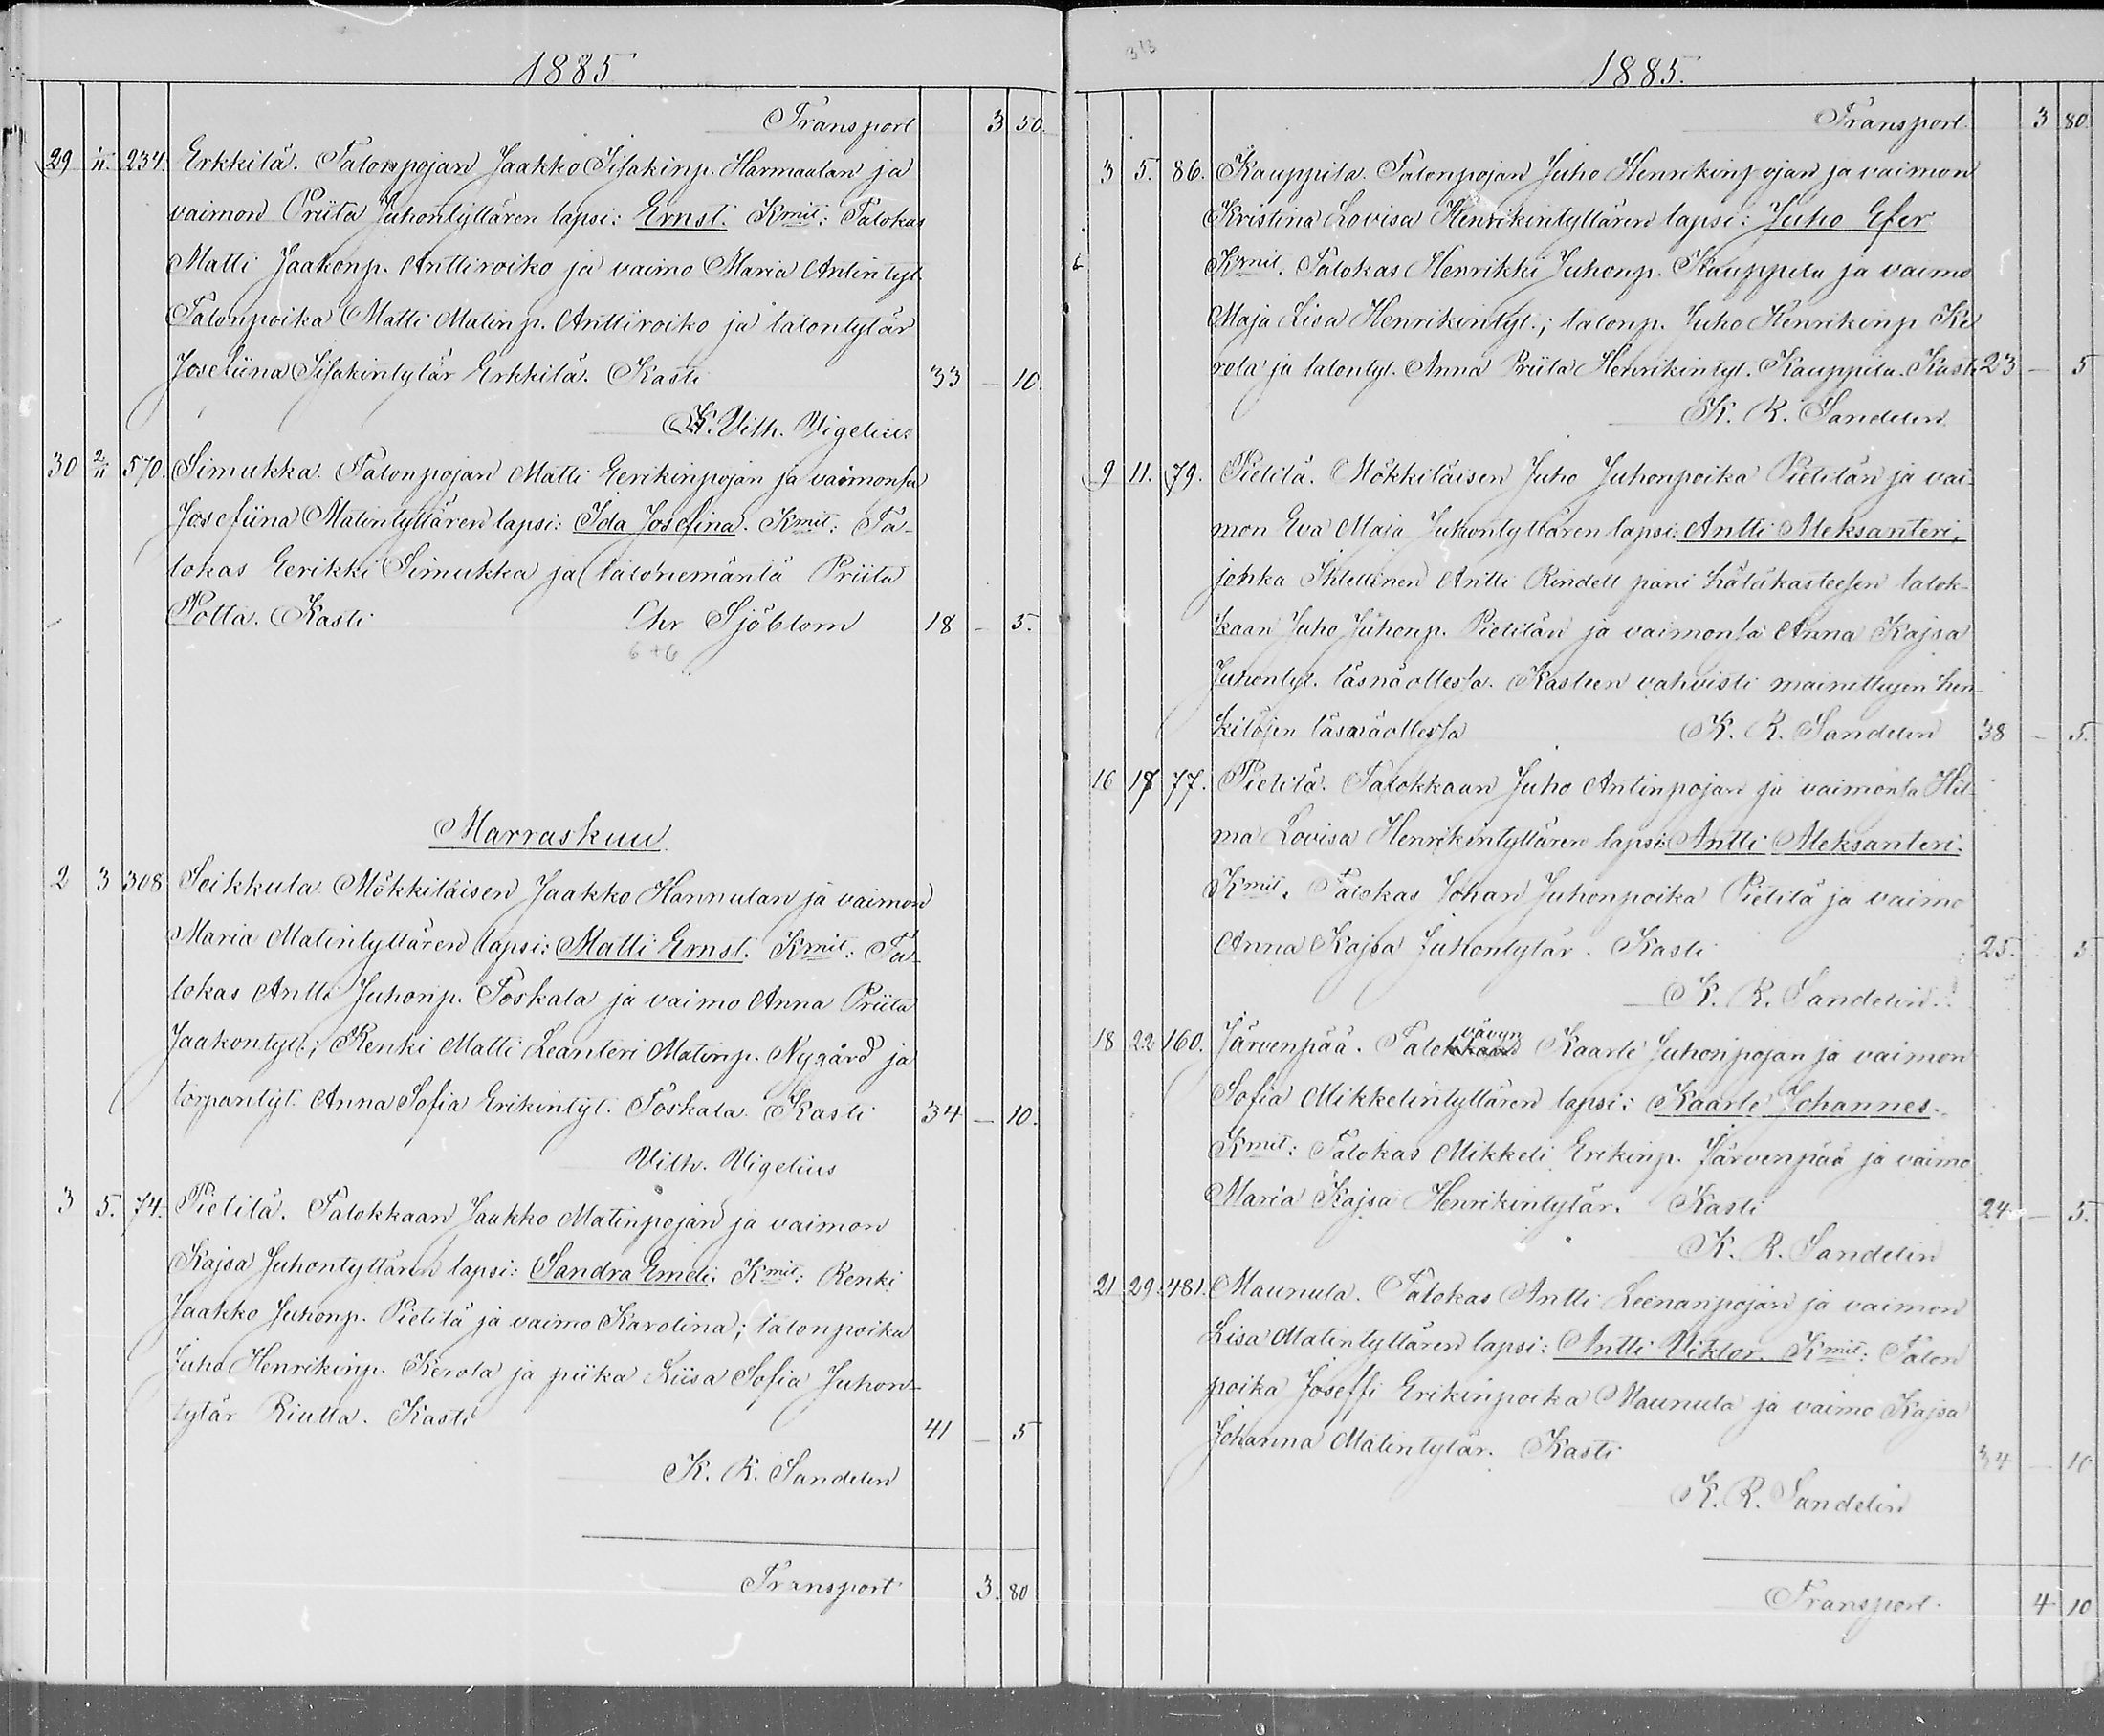 1885
Transport 3 50.
29 1/11. 234. Erkkilä. Talonpojan Jaakko Iisakinp. Harmaalan ja
vaimon Priita Juhontyttären lapsi: Ernst. Kmit: Talokas
Matti Jaakonp. Anttiroiko ja vaimo Maria Antintyt.
Talonpoika Matti Matinp. Anttiroiko ja talontytär
Josefiina Iisakintytär Erkkilä. Kasti 33 — 10.
K. Vilh. Vigelius
30 2/11 570. Simukka. Talonpojan Matti Eerikinpojan ja vaimonsa
Josefiina Matintyttären lapsi: Ida Josefina. Kmit: Ta-
lokas Eerikki Simukka ja talonemäntä Priita
Potta. Kasti Chr Sjöblom 18 — 5.
6+6
Marraskuu
2 3 308 Seikkula. Mökkiläisen Jaakko Hannulan ja vaimon
Maria Matintyttären lapsi: Matti Ernst. Kmit: Ta-
lokas Antti Juhonp. Toskala ja vaimo Anna Priita
Jaakontyt.; Renki Matti Leanteri Matinp. Nygård ja
torpantyt. Anna Sofia Erikintyt. Toskala. Kasti 34 — 10.
Vilh. Vigelius
3 5. 74. Pietilä. Talokkaan Jaakko Matinpojan ja vaimon
Kajsa Juhontyttären lapsi: Sandra Emeli. Kmit: Renki
Jaakko Juhonp. Pietilä ja vaimo Karolina; talonpoika
Juho Henrikinp. Kerola ja piika Liisa Sofia Juhon-
tytär Riutta. Kasti 41 — 5
K. R. Sandelin
Transport 3. 80
313
1885.
Transport 3 80.
3 5. 86. Kauppila. Talonpojan Juho Henrikinpojan ja vaimon
Kristina Lovisa Henrikintyttären lapsi: Juho Efer
Kmit. Talokas Henrikki Juhonp. Kauppila ja vaimo
Maja Lisa Henrikintyt.; talonp. Juho Henrikinp Ke
rola ja talontyt. Anna Priita Henrikintyt. Kauppila. Kast. 23 — 5
K. R. Sandelin
9 11. 79. Pietilä. Mökkiläisen Juho Juhonpoika Pietilän ja vai-
mon Eva Maja Juhontyttären lapsi: Antti Aleksanteri,
jonka Itsellinen Antti Rindell pani hätäkasteesen talok-
kaan Juho Juhonp. Pietilän ja vaimonsa Anna Kajsa
Juhontyt. läsnäollessa. Kasteen vahvisti mainittujen hen-
kilöjen läsnäollessa K. R. Sandelin 38 — 5.
16 17 77. Pietilä. Talokkaan Juho Antinpojan ja vaimonsa Hil-
ma Lovisa Henrikintyttären lapsi: Antti Aleksanteri.
Kmit. Talokas Johan Juhonpoika Pietilä ja vaimo
Anna Kajsa Juhontytär. Kasti 25. 5.
K. R. Sandelin.
18 22 160. Järvenpää. Talokkaan vävyn Kaarle Juhonpojan ja vaimon
Sofia Mikkelintyttären lapsi: Kaarle Johannes.
Kmit: Talokas Mikkeli Erikinp. Järvenpää ja vaimo
Maria Kajsa Henrikintytär. Kasti 24 — 5.
K. R. Sandelin
21 29. 481. Maunula. Talokas Antti Leenanpojan ja vaimon
Lisa Matintyttären lapsi: Antti Viktor. Kmit: Talon
poika Joseffi Erikinpoika Maunula ja vaimo Kajsa
Johanna Matintytär. Kasti 34 — 10
K. R. Sandelin
Transport 4 10